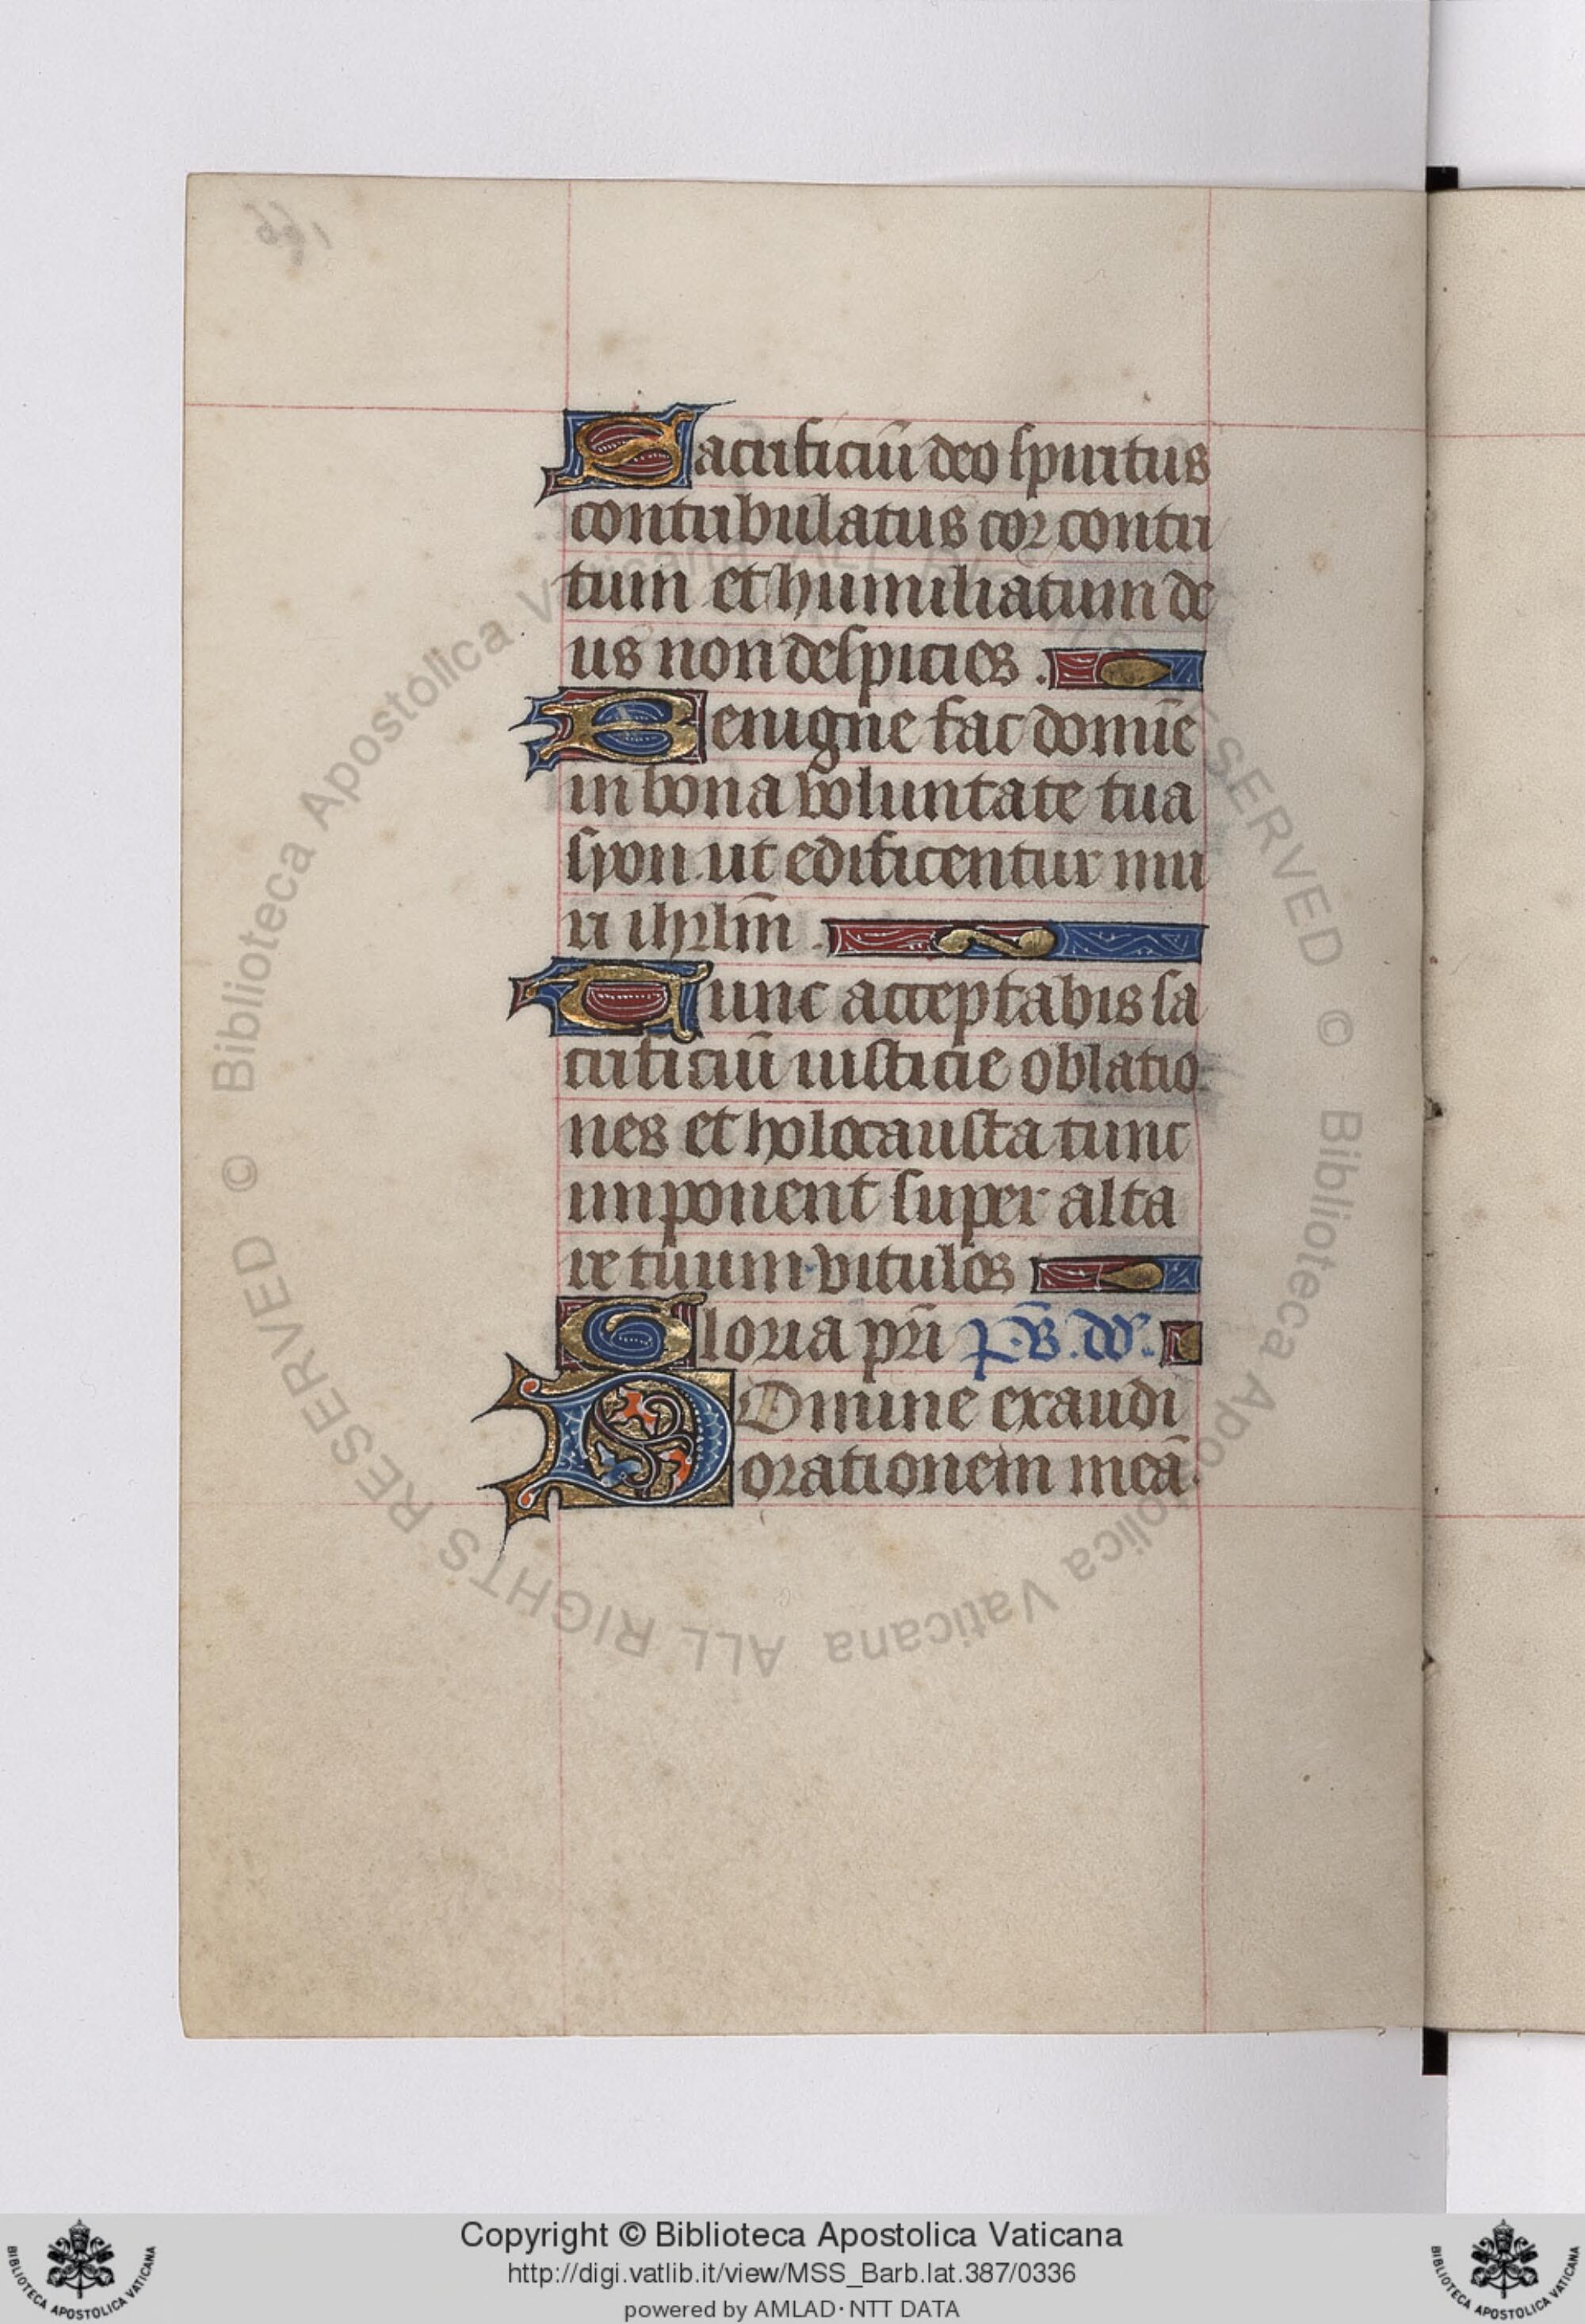 Sacrificiū deo spiritus
contribulatus cor contri
tum et humiliatum de
us non despicies .
Benigne fac domīe
in bona voluntate tua
syon ut edificentur mu
ri ihrlm̄ .
Tunc acceptabis sa
crificiū iusticie oblatio
nes et holocausta tunc
imponent super alta
re tuum vitulos
Gloria pr̄i
Domine exaudi
orationem meā
© Biblioteca Apostolica Vaticana ALL RIGHTS RESERVED
© Biblioteca Apostolica Vaticana ALL RIGHTS RESERVED
Copyright © Biblioteca Apostolica Vaticana
http://digi.vatlib.it/view/MSS_Barb.lat.387/0336
powered by AMLAD·NTT DATA
BIBLIOTECA APOSTOLICA VATICANA
BIBLIOTECA APOSTOLICA VATICANA